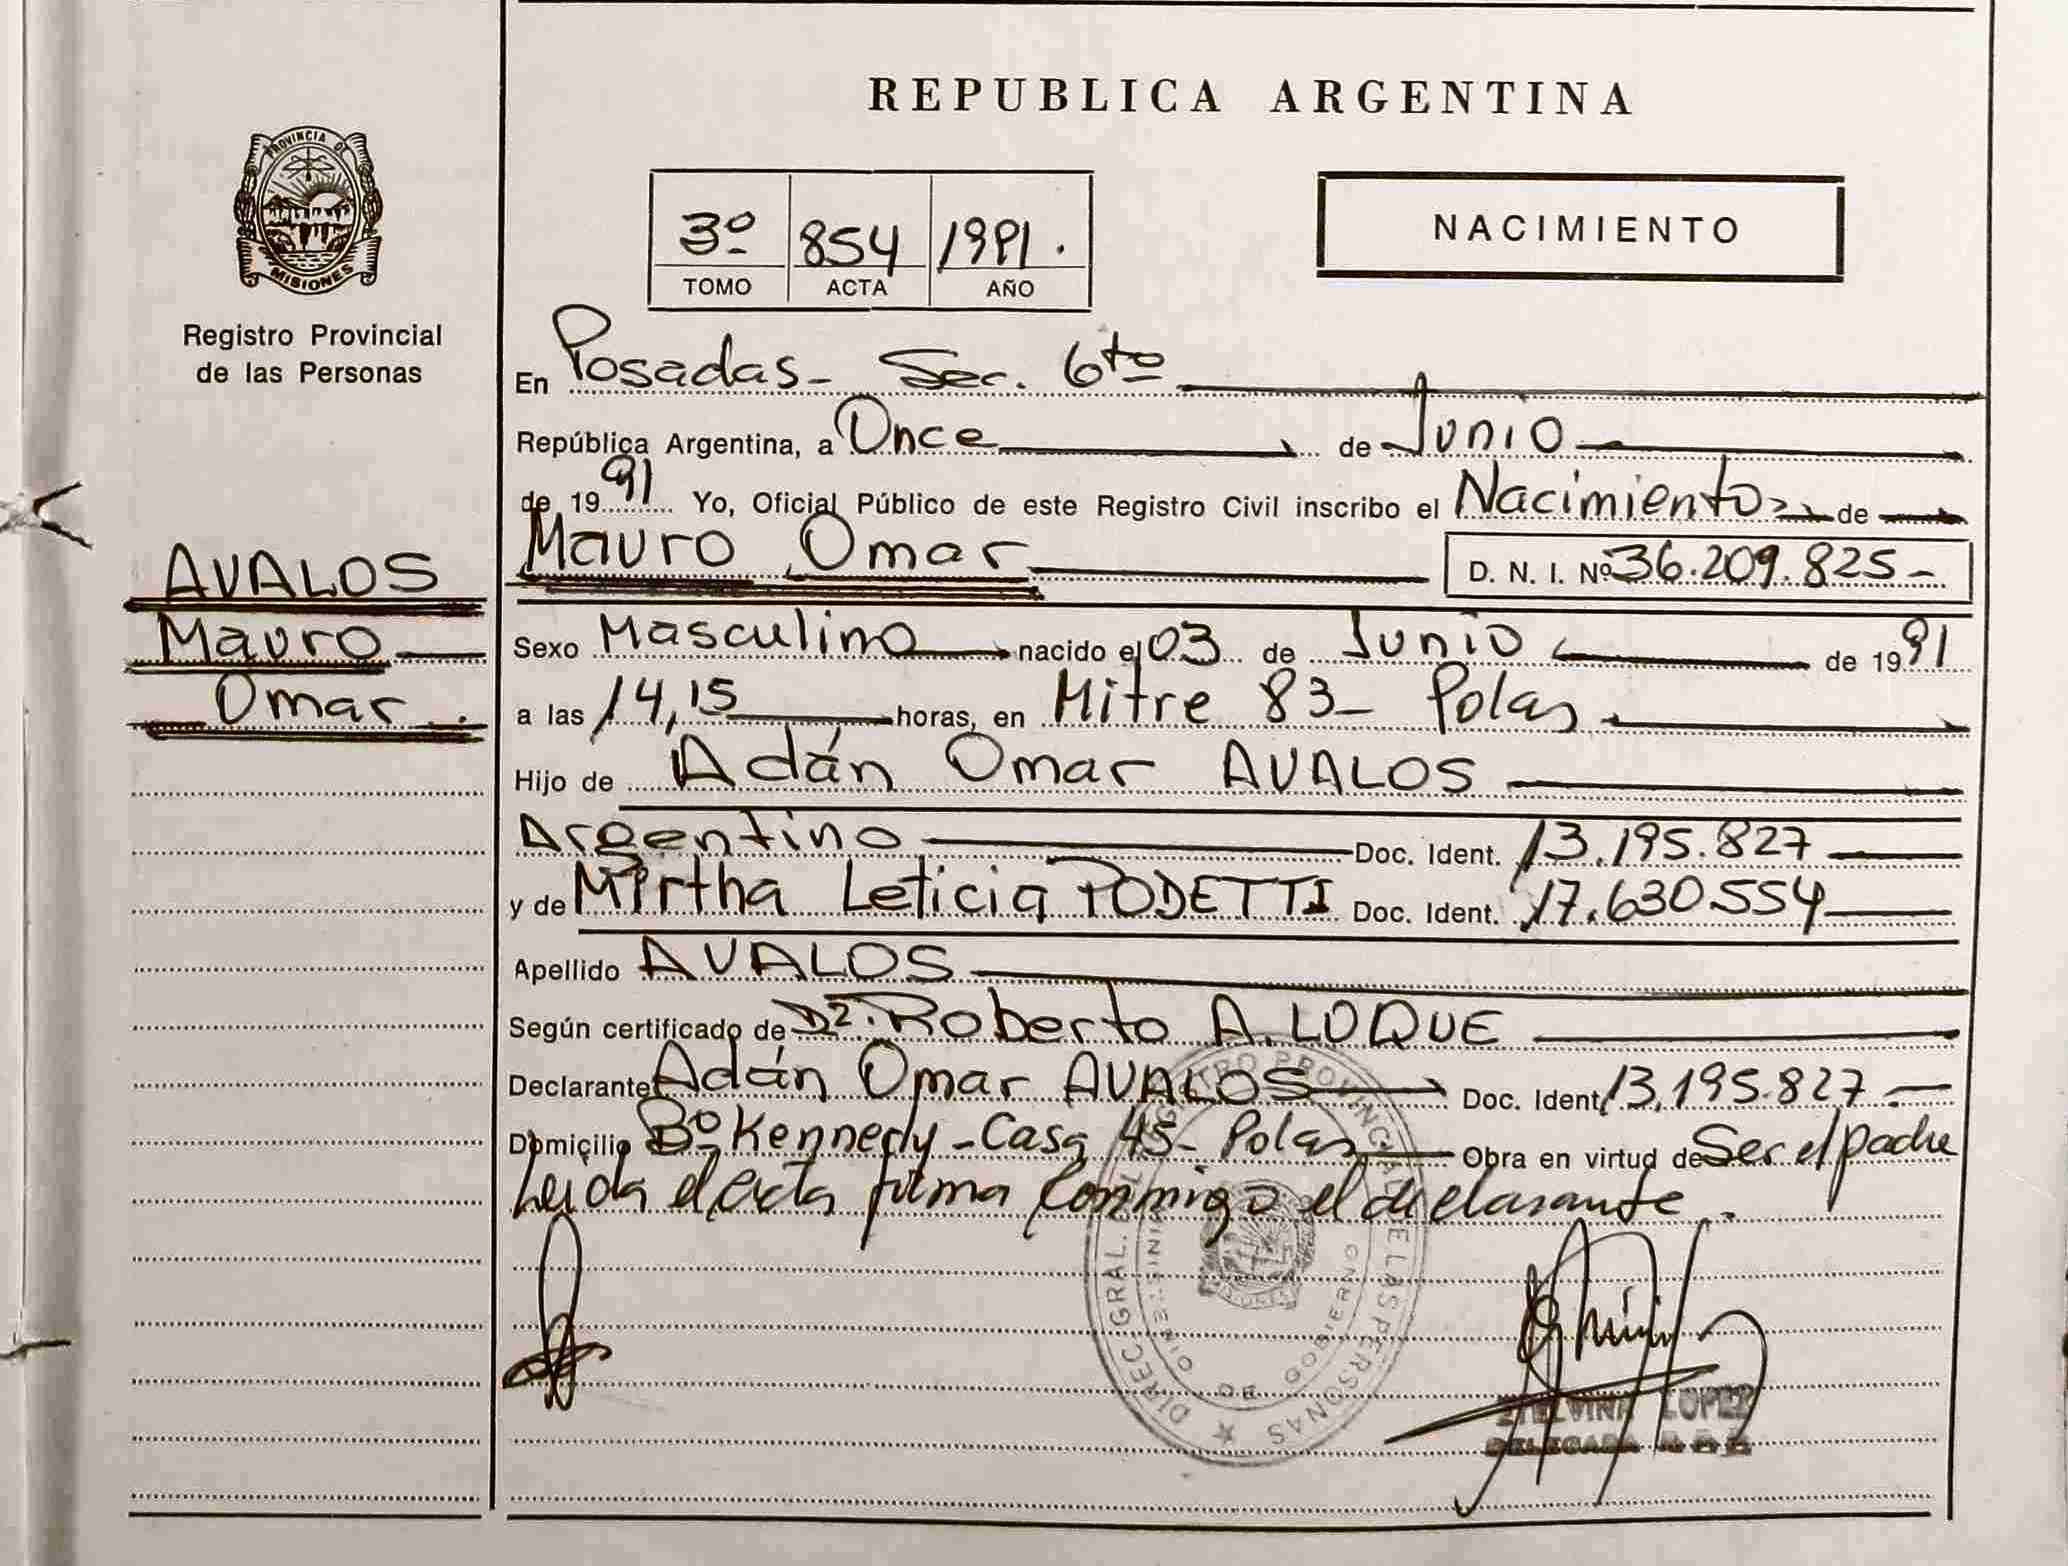 REPUBLICA ARGENTINA
PROVINCIA DE
MISIONES
Registro Provincial
de las Personas
3º 854 1991.
TOMO ACTA AÑO
NACIMIENTO
AVALOS
Mauro
Omar
En Posadas- Sec. 6to
República Argentina, a Once de Junio
de 1991 Yo, Oficial Público de este Registro Civil inscribo el Nacimiento de
Mauro Omar D. N. I. Nº 36.209.825-
Sexo Masculino nacido el 03 de Junio de 1991
a las 14,15 horas, en Mitre 83- Pdas
Hijo de Adán Omar AVALOS
Argentino Doc. Ident. 13.195.827
y de Mirtha Leticia PODETTI Doc. Ident. 17.630.554
Apellido AVALOS
Según certificado de Dr. Roberto A. LUQUE
Declarante Adán Omar AVALOS Doc. Ident. 13.195.827-
Domicilio Bº Kennedy-Casa 45- Pdas Obra en virtud de Ser el padre
Leida el acta firma conmigo el declarante.
DIREC. GRAL. DEL REGISTRO PROVINCIAL DE LAS PERSONAS
DE GOBIERNO
ETELVINA LOPEZ
DELEGADA